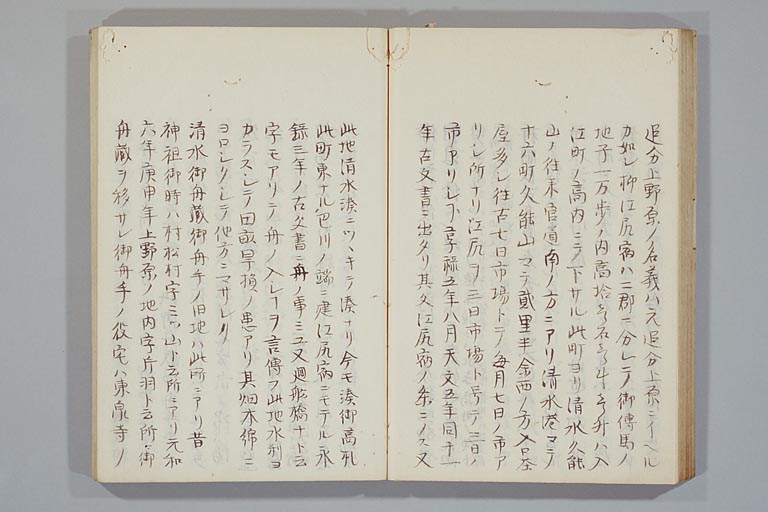 追分上野原ノ名義ハ元追分上原ニイヘル
カ如シ抑江尻宿ハ二郡ニ分レテ御傳馬ノ
地子一万歩ノ内高拾 石 斗 升ハ入
江町ノ高内ニテ下サル此町ヨリ清水久能
山ノ往来官道南ノ方ニアリ清水港マテ
十六町久能山マテ貳里半余西ノ方入口茶
屋多シ往古七日市場トテ毎月七日ノ市ア
リシ所ナリ江尻ヲ三日市場ト号テ三日ノ
市アリシ 享禄五年八月天文五年同十一
年古文書ニ出タリ其文江尻宿ノ条ニノス又
此地清水湊ニツヽキテ湊ナリ今モ湊御高札
此町東ナル巴川ノ端ニ建江尻宿ニモテル永
録三年ノ古文書ニ舟ノ事ミユ又廻舩橋ナト云
字モアリテノ舟ノ入レ ヲ言傳フ此地水利ヨ
カラスシテ田畝旱損ノ患アリ其畑木綿ニ
ヨロシクシテ他方ニマサレリ
清水御舟蔵御舟手ノ旧地ハ此所ニアリ昔
神祖御時ハ村松村字ミツ山ト云所ニアリ元和
六年庚申年上野原ノ地内字片羽ト云所ヘ御
舟蔵ヲ移サレ御舟手ノ役宅ハ東泉寺ノ